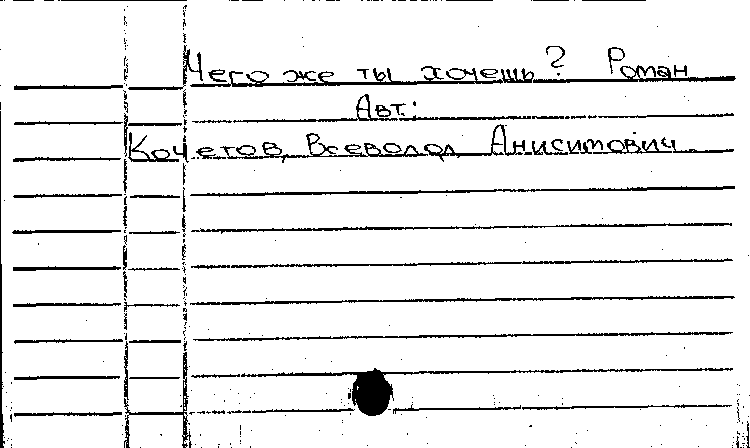 Чего же ты хочешь? Роман
Авт.:
Кочетов, Всеволод Анисимович.